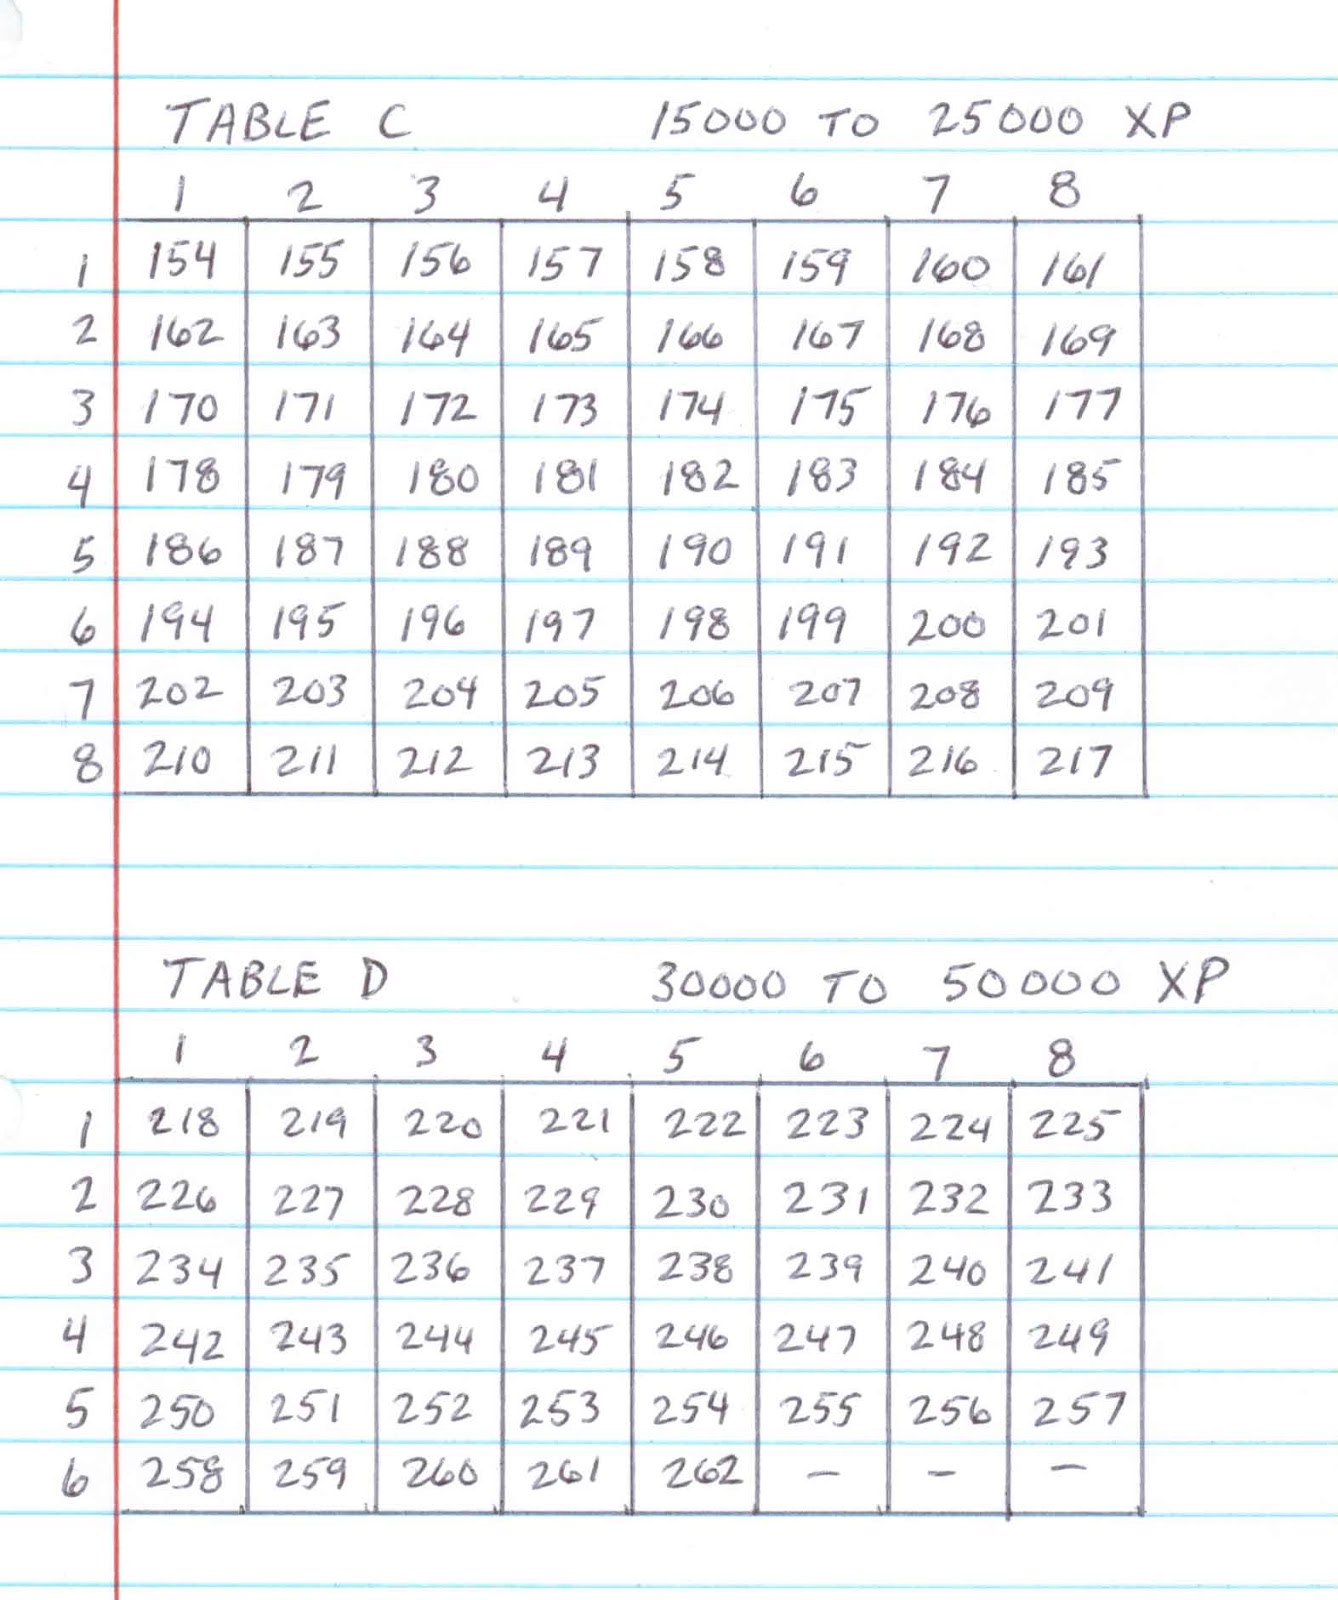 TABLE C 15000 TO 25000 XP
1 2 3 4 5 6 7 8
1 154 155 156 157 158 159 160 161
2 162 163 164 165 166 167 168 169
3 170 171 172 173 174 175 176 177
4 178 179 180 181 182 183 184 185
5 186 187 188 189 190 191 192 193
6 194 195 196 197 198 199 200 201
7 202 203 204 205 206 207 208 209
8 210 211 212 213 214 215 216 217
TABLE D 30000 TO 50000 XP
1 2 3 4 5 6 7 8
1 218 219 220 221 222 223 224 225
2 226 227 228 229 230 231 232 233
3 234 235 236 237 238 239 240 241
4 242 243 244 245 246 247 248 249
5 250 251 252 253 254 255 256 257
6 258 259 260 261 262 — — —